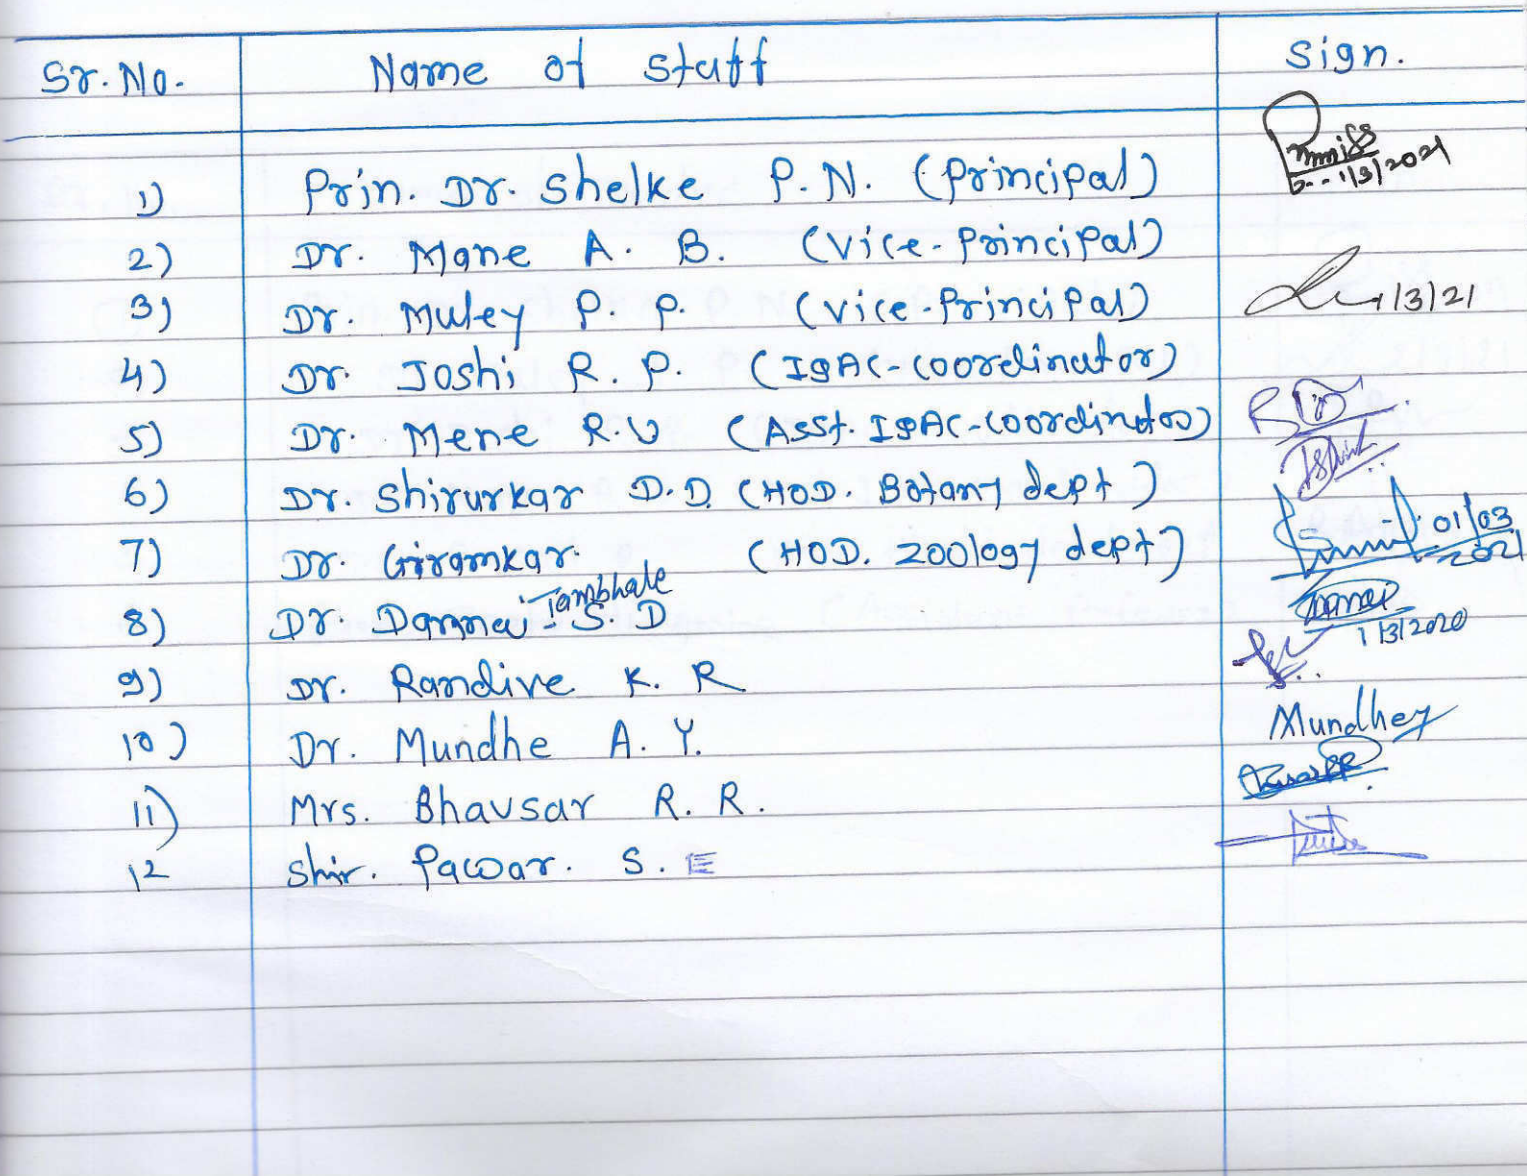 Sr. No. Name of Staff Sign.
1) Prin. Dr. Shelke P. N. (Principal) 1/3/2021
2) Dr. Mane A. B. (Vice-Principal)
3) Dr. Muley P. P. (Vice-Principal) 1/3/21
4) Dr. Joshi R. P. (IQAC-Coordinator)
5) Dr. Mene R.V (Asst. IQAC-Coordindtor)
6) Dr. Shirurkar D.D. (HOD. Botany dept)
7) Dr. Giramkar. (HOD. Zoology dept) 01/03/2021
Tambhale
8) Dr. S. D 1/3/2020
9) Dr. Randive K. R
10) Dr. Mundhe A. Y. Mundhey
11) Mrs. Bhavsar R. R.
12 Shir. Pawar. S. E